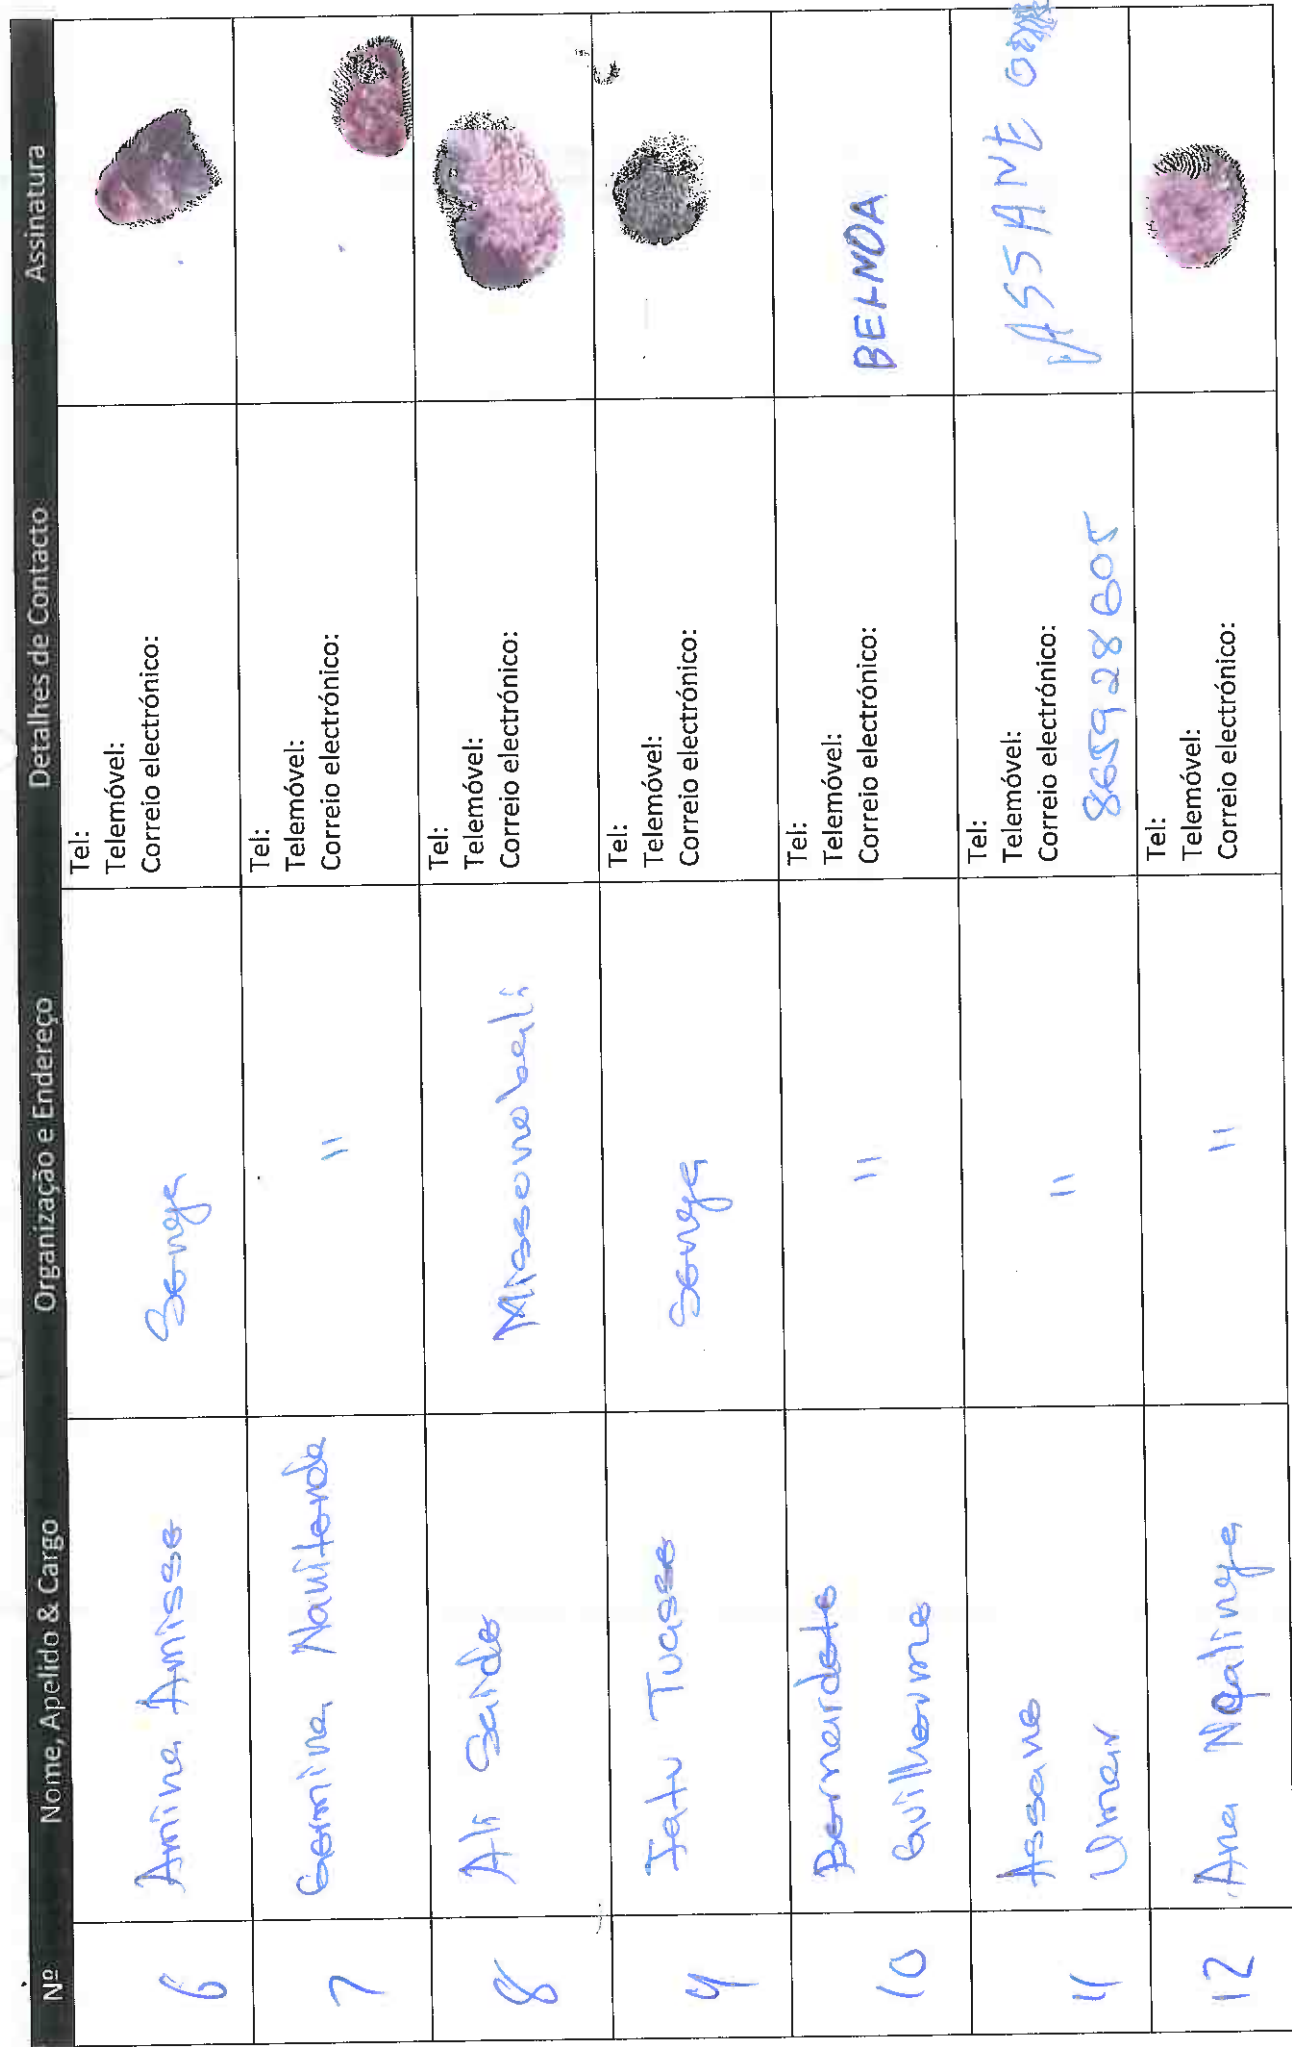 Nº Nome, Apelido & Cargo Organização e Endereço Detalhes de Contacto Assinatura
6 Amina Amisse Senga Tel:
Telemóvel:
Correio electrónico:
7 Germina Nauitenda 11 Tel:
Telemóvel:
Correio electrónico:
8 Ali Saide Tel:
Telemóvel:
Correio electrónico:
9 Fatu Tuasse Senga Tel:
Telemóvel:
Correio electrónico:
10 Bernardete
Guilherme 11 Tel:
Telemóvel:
Correio electrónico:
11 Assane
Umar 11 Tel:
Telemóvel:
Correio electrónico:
865928605
ASSANE
12 Ana 11 Tel:
Telemóvel:
Correio electrónico: